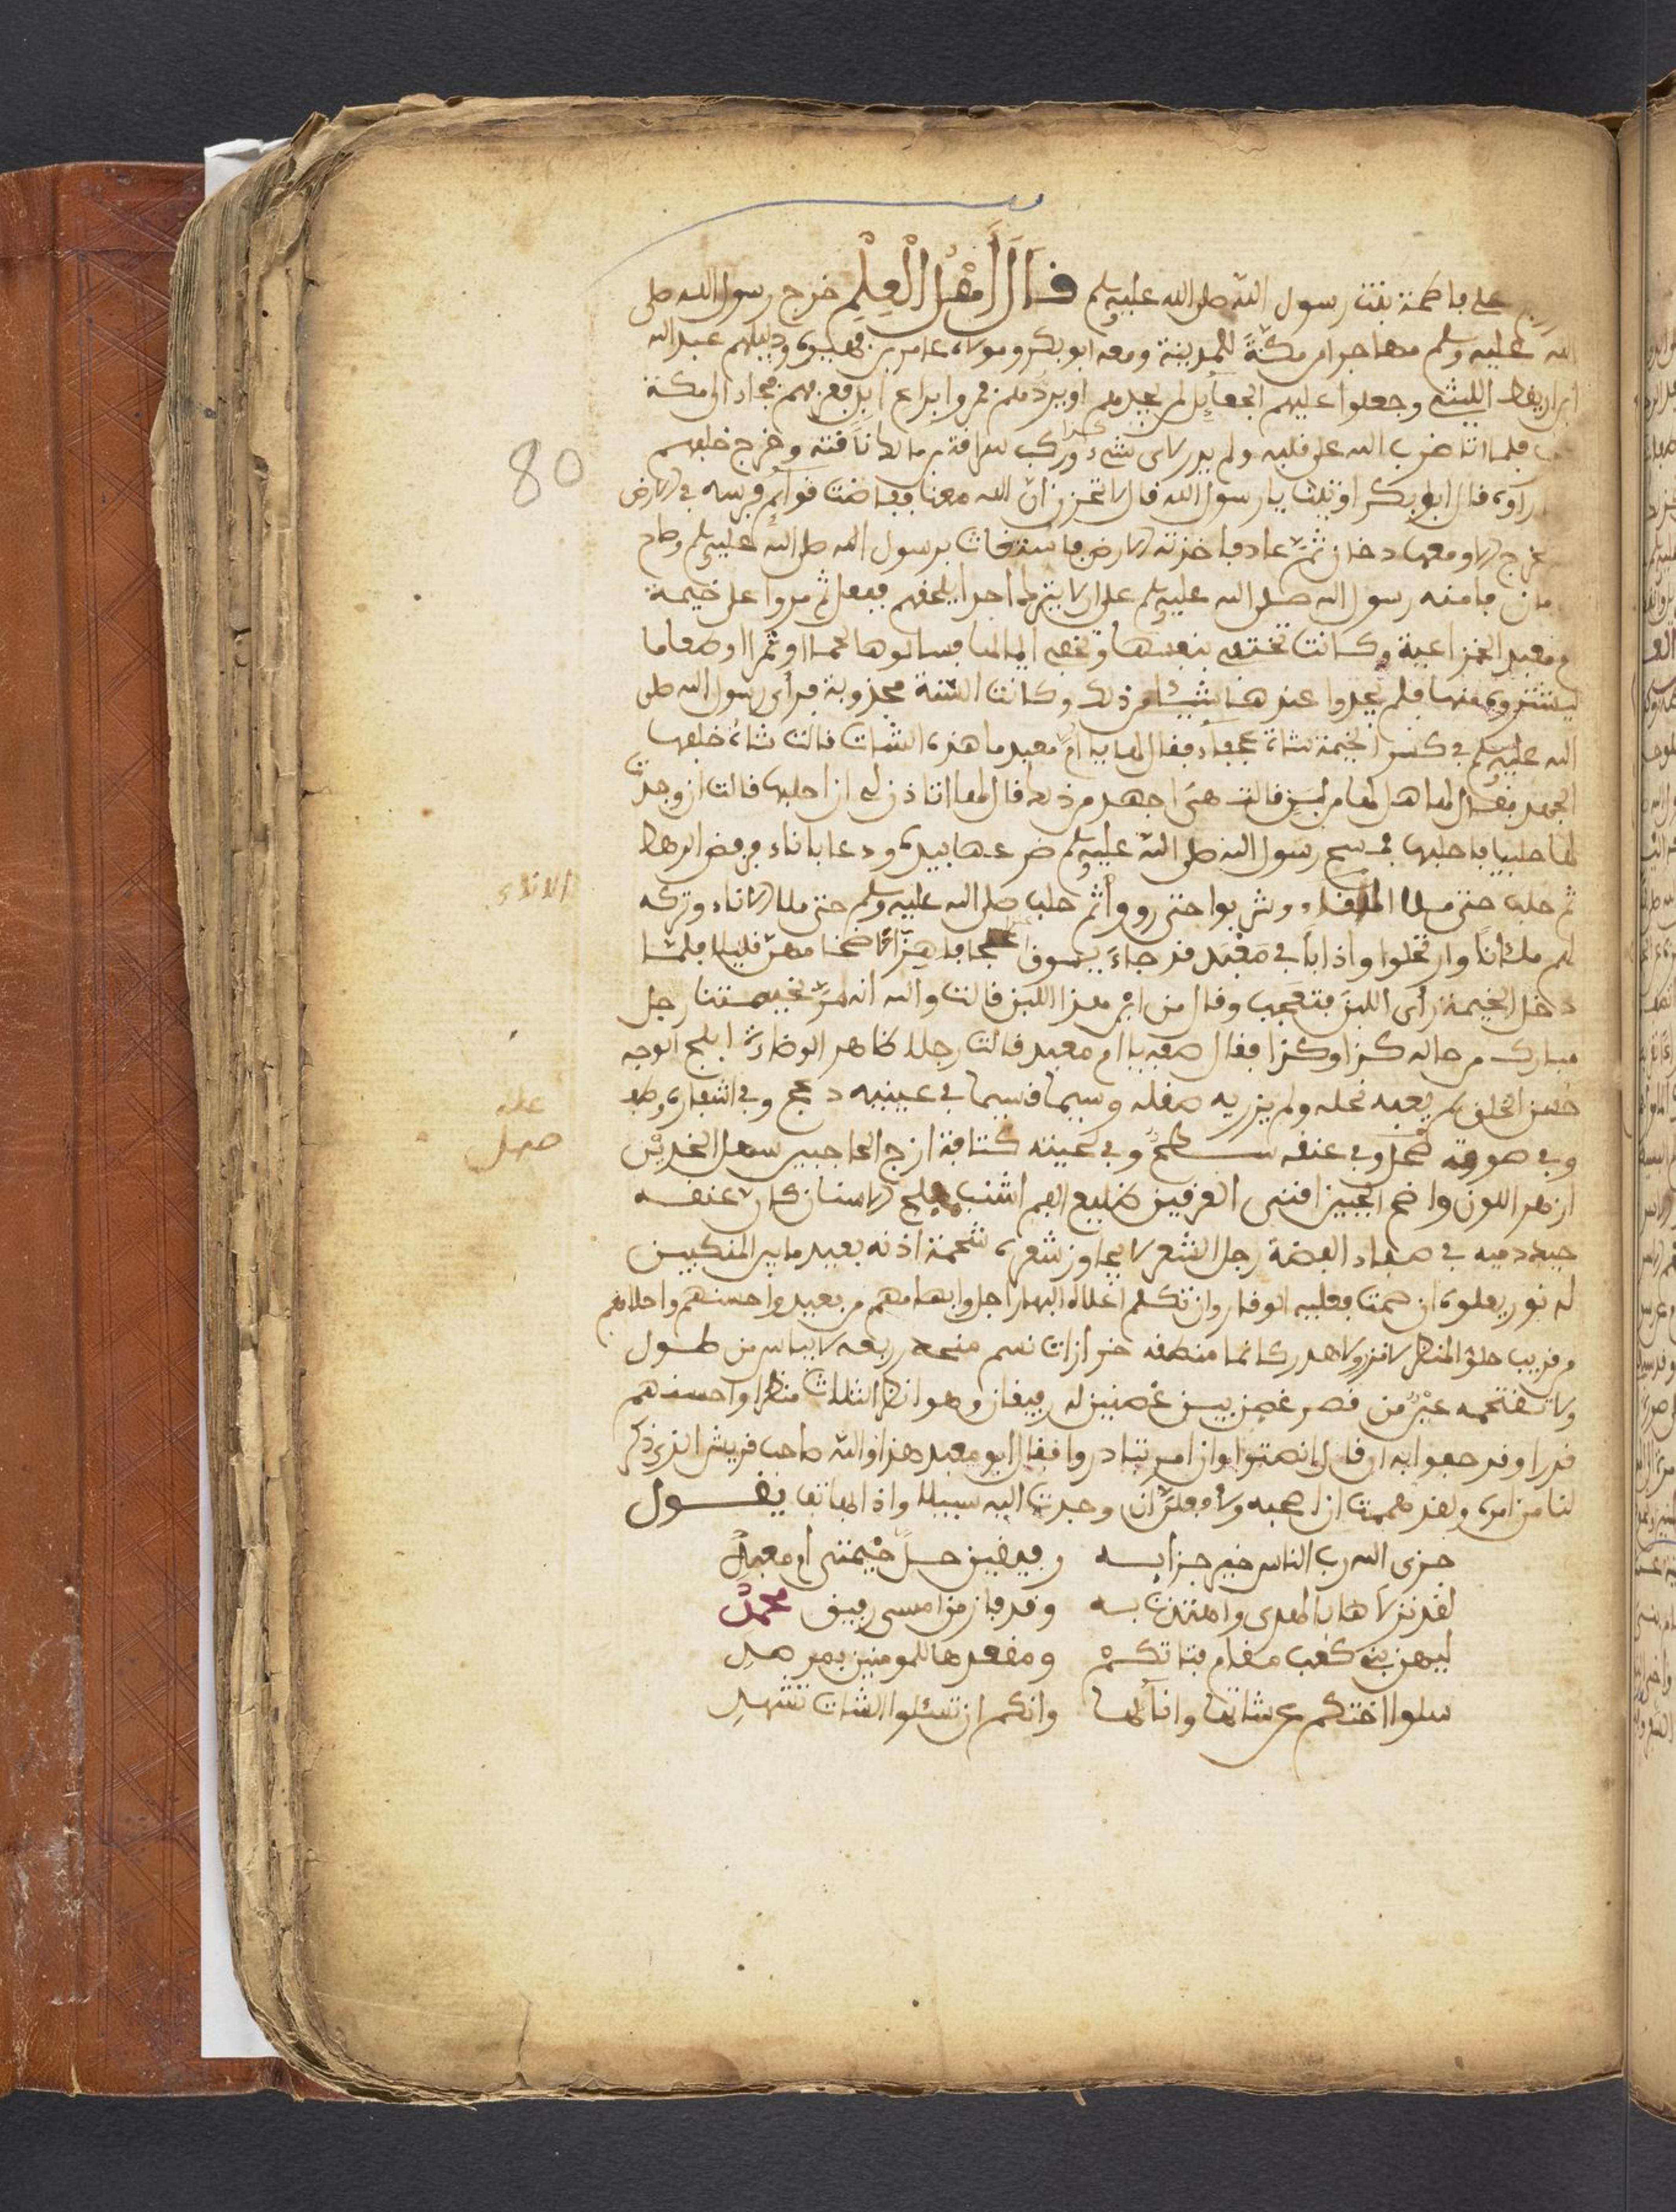 على فاطمة بنت رسول الله صلى الله عليه وسلم قَالَ أَهْلُ الْعِلْمِ خرج رسول الله صلى
الله عليه وسلم مهاجرا من مكة للمدينة ومعه ابو بكر ومولاه عامر بن فهيرة ودليلهم عبد الله
ابن اريقط الليثي وجعلوا عليهم الجعائل لمن يجدهم او يردهم فمروا براع فجاء الى مكة
فلما اتا ضرب الله على قلبه ولم يدر لاى شيء وركب سراقة بن مالك ناقته وخرج خلفهم
رآه قال ابو بكر اوتينا يا رسول الله قال لا تحزن ان الله معنا فغاضت قوائم فرسه في الارض
دخان ثم عاد فاخذته الارض فاستغاث برسول الله صلى الله عليه وسلم وصاح
فامنه رسول الله صلى الله عليه وسلم على ان لا يترك احدا يلحقهم ففعل ثم مروا على خيمة
ام معبد الخزاعية وكانت تختبي بنفسها فسالوها لحما او تمرا او طعاما
يشتروه منها فلم يجدوا عندها شيئا من ذلك وكانت السنة مجذوبة فرأى رسول الله صلى
الله عليه وسلم في كسر الخيمة شاة عجفاء فقال لها يا ام معبد ما هذه الشات قالت شاة خلفها
الجهد فقال لها هل لها من لبن قالت هي اجهد من ذلك قال لها اتاذن لي ان احلبها قالت ان وجدت
لها حلبا فاحلبها فمسح رسول الله صلى الله عليه وسلم ضرعها بيده ودعا باناء يربض الرهط
ثم حلب حتى ملا الاناء وشربوا حتى رووا ثم حلب صلى الله عليه وسلم حتى ملا الاناء وتركه
لهم ملانا وارتحلوا واذا بابي معبد قد جاء يسوق عجافا هزلا مخهن قليل فلما
دخل الخيمة رأى اللبن فتعجب وقال من اين هذا اللبن قالت والله انه مر بخيمتنا رجل
مبارك من حاله كذا وكذا فقال صفه يا ام معبد قالت رجلا ظاهر الوضاءة ابلج الوجه
حسن الخلق لم يعبه نحله ولم يزريه صقله وسيما قسيما في عينيه دعج وفي اشفاره وطف
وفي صوته صحل وفي عنقه سطع وفي لحيته كثافة ازج الحاجبين سهل الخدين
ازهر اللون واضح الجبين اقنى العرنين ضليع الفم اشنب مفلج الاسنان كان عنقه
جيد دمية في صفاء الفضة رجل الشعر لا يجاوز شعره شحمة اذنه بعيد ما بين المنكبين
له نور يعلوه ان صمت فعليه الوقار وان تكلم اجل الناس وابهاهم من بعيد واحسنهم واحلاهم
من قريب حلو المنطق لا نزر ولا هدر كانما منطقه خرازات نظم ربعه لا يباس من طول
ولا تقتحمه عين من قصر غصن بين غصنين له رفيقان وهو انظر الثلاث منظرا واحسنهم
قدرا وقد حفوا به ان قال انصتوا وان امر تبادروا فقال ابو معبد هذا والله صاحب قريش الذي ذكر
لنا من امره ولقد هممت ان اصحبه ولافعلن ان وجدت اليه سبيلا واذا الهاتف يقول
جزى الله رب الناس خير جزايه رفيقين حلا خيمتى ام معبد
لقد نزلاها بالهدى واهتدت به وقد فاز من امسى رفيق محمد
ليهن بني كعب مقام فتاتكم ومقعدها للمومنين بمرصد
سلوا اختكم عن شاتها وانائها وانكم ان تسئلوا الشات تشهد
80
الاناء
علة
صهل